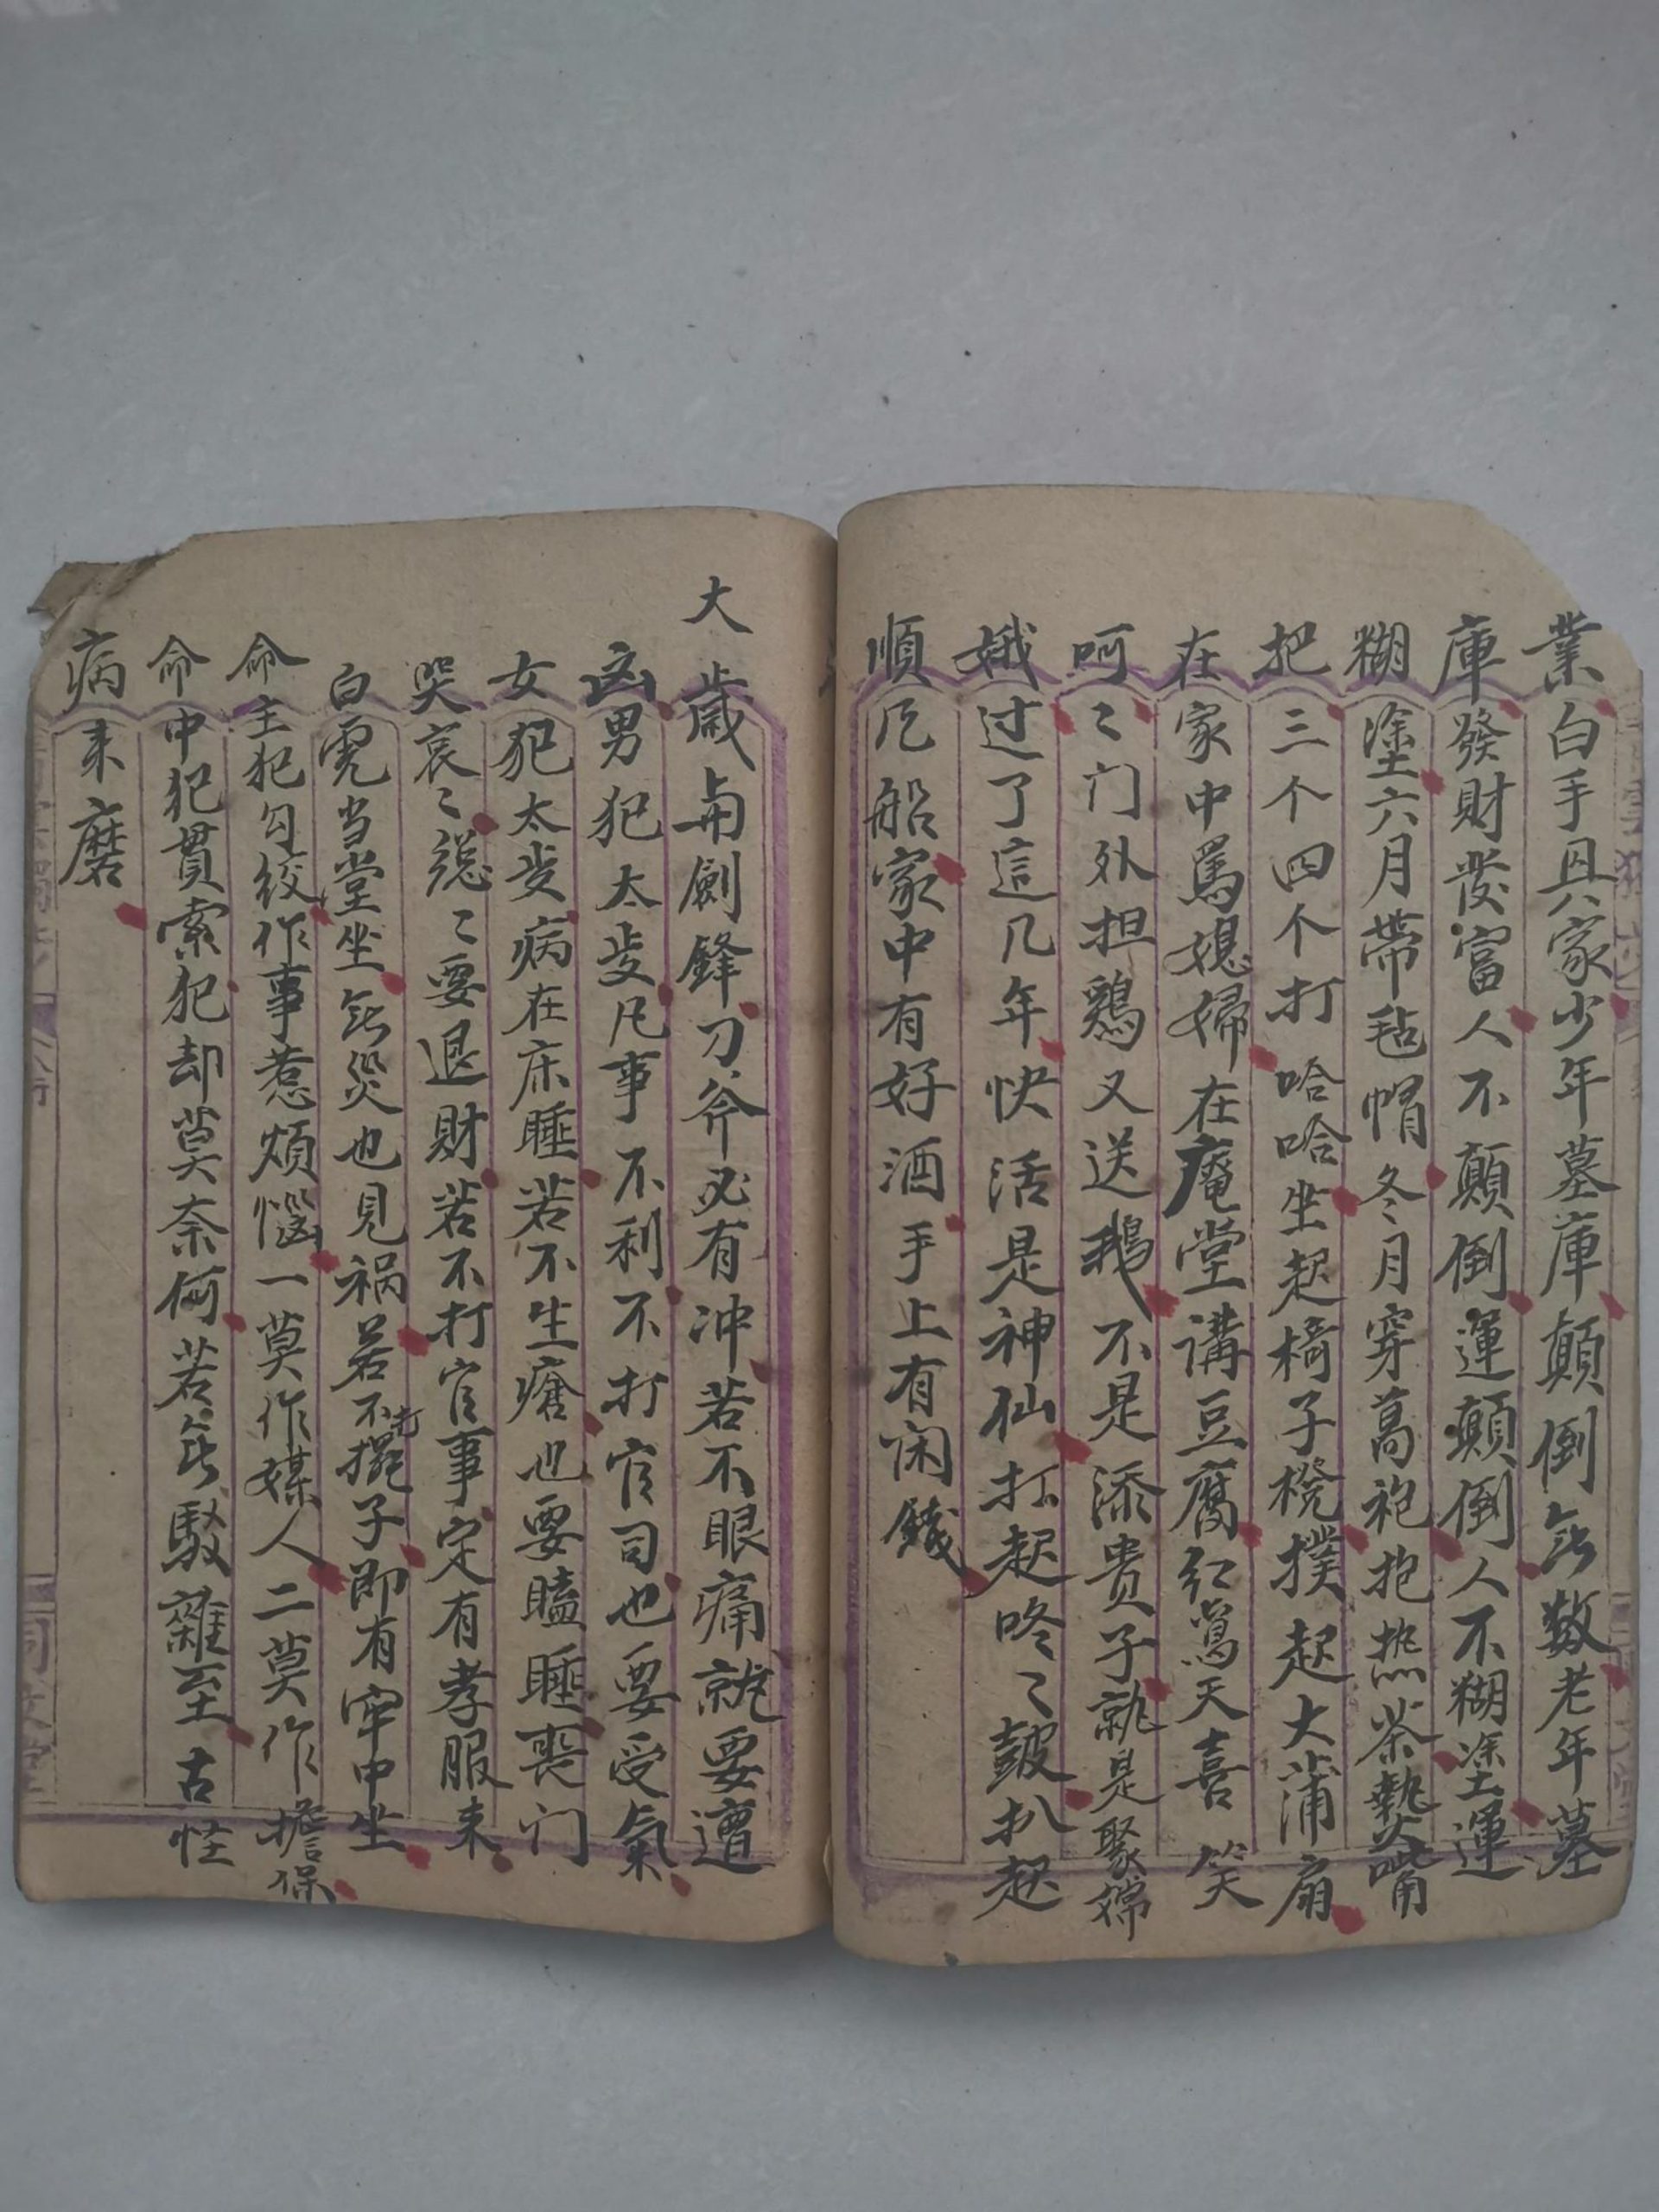 業白手興家少年墓庫顛倒無数老年墓
庫發財發富人不顛倒運顛倒人不糊塗運
糊塗六月帶毡帽冬月穿葛袍抱熱茶嘴
把三个四个打哈哈坐起椅子櫈撲起大蒲扇
在家中罵媳婦在庵堂講豆腐红鸞天喜笑
呵〻门外担鷄又送鵝不是添贵子就是娶媳
娥过了這几年快活是神仙打起咚〻鼓扒起
順风船家中有好酒手上有闲錢
大歳与劍鋒刀斧必有冲若不眼痛就要遭
凶男犯太歳凡事不利不打官司也要受氣
女犯太歳病在床睡若不生瘡也要瞌睡喪门
哭哀〻總〻要退財若不打官事定有孝服来
白虎当堂坐無災也見祸若不打擺子即有牢中坐
命主犯勾绞作事惹煩惱一莫作媒人二莫作擔保
命中犯贯索犯却莫奈何若無駁雜至古怪
病来磨